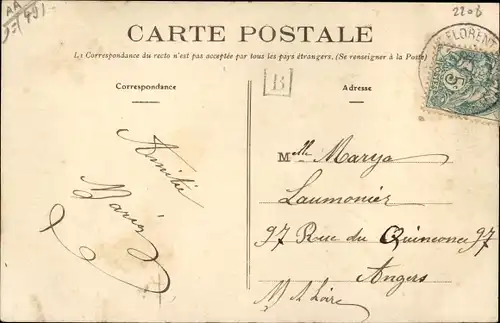 2206
CARTE POSTALE
La Correspondance du recto n'est pas acceptée par tous les pays étrangers. (Se renseigner à la Poste)
B
FLORENT
5
Correspondance
Adresse
Amitié
Maria
Melle Marya
Laumonier
97 Rue du Quinconce 97
Angers
M et Loire